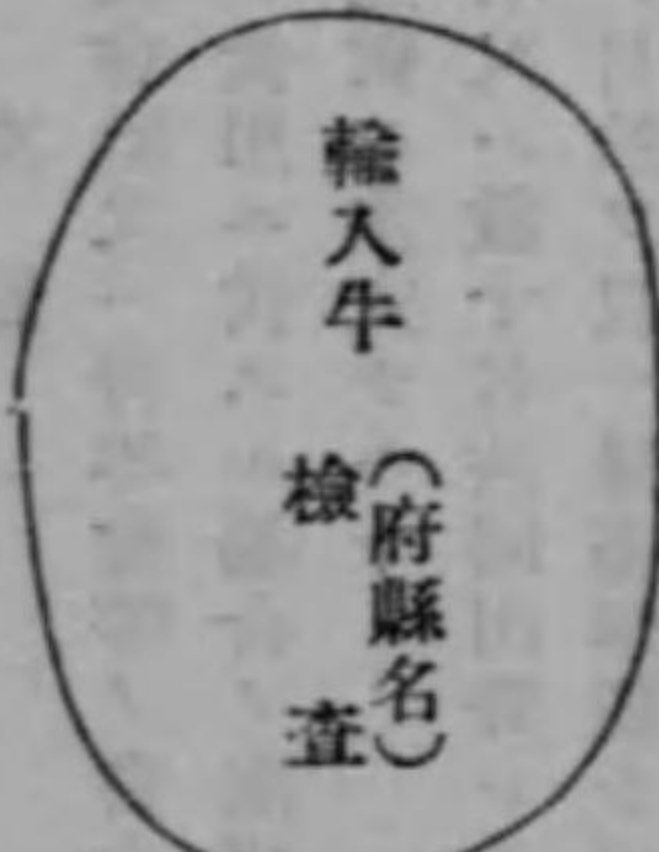 輸入牛
(府縣名)
檢查